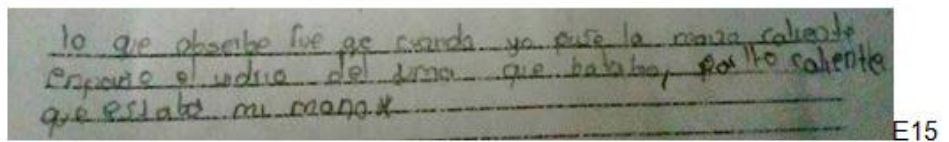 lo que obserbe fue qe cuando yo puse la mano caliente
enpause el vidrio del que botaba, por lo caliente
que estaba mi mano
E15